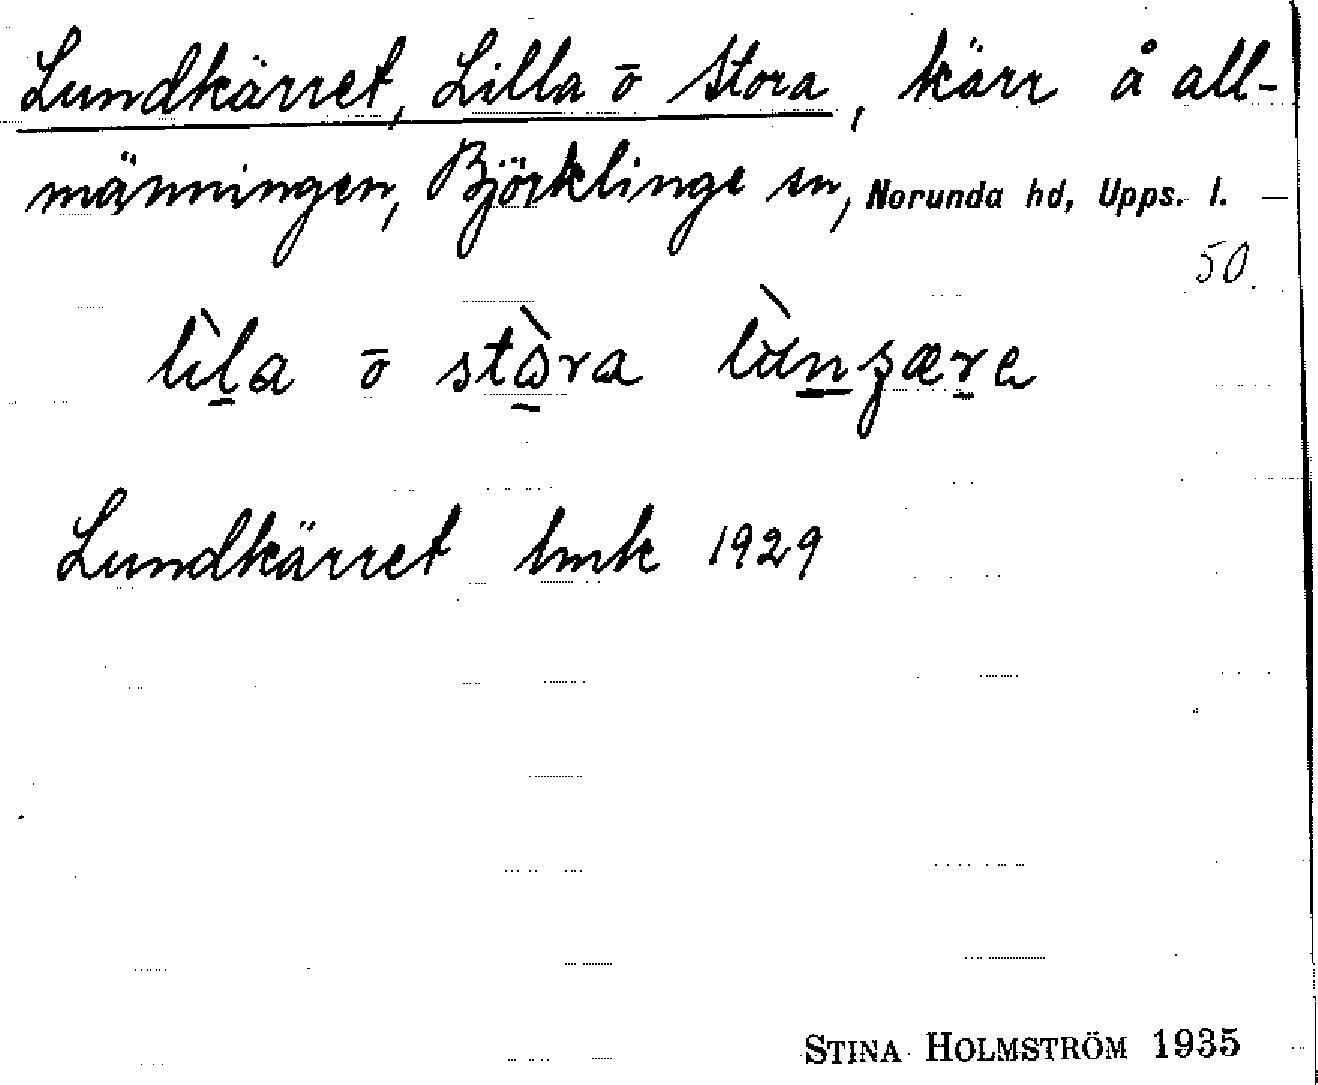 Lundkärret, Lilla o̅ Stora, kärr å all-
männingen, Björklinge sn, Norunda hd, Upps. l. —
50.
lìl̲a o̅ stò̲ra
Lundkärret hmk 1929
STINA HOLMSTRÖM 1935